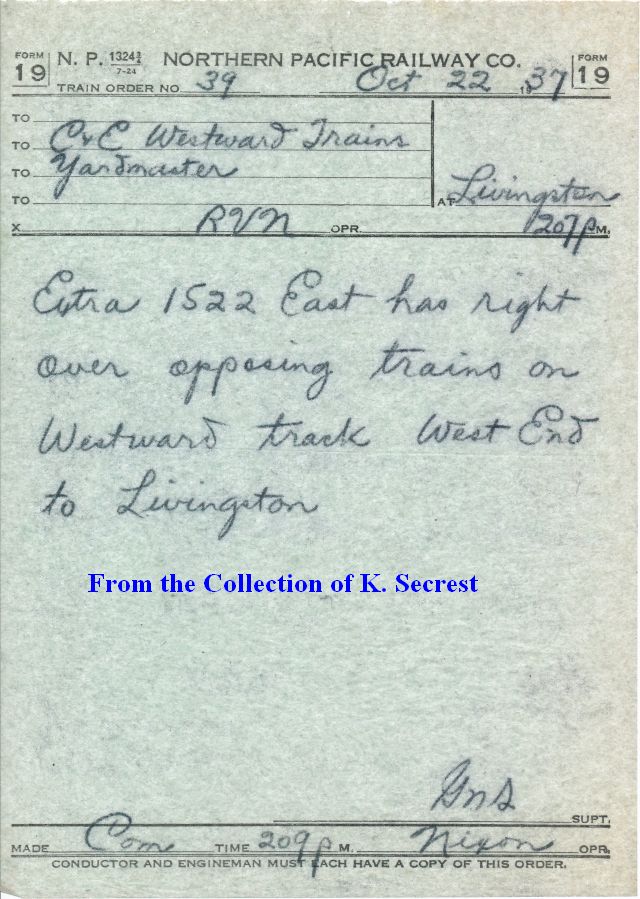 FORM 19 N. P. 1324¾ 7-24 NORTHERN PACIFIC RAILWAY CO. FORM 19
TRAIN ORDER NO. 39 Oct 22 1937
TO
TO C&E Westward Trains
TO Yardmaster
TO AT Livingston
X RVN OPR. 207 P M.
Extra 1522 East has right
over opposing trains on
Westward track West End
to Livingston
From the Collection of K. Secrest
GNS SUPT.
MADE Com TIME 209 P M. Nixon OPR.
CONDUCTOR AND ENGINEMAN MUST EACH HAVE A COPY OF THIS ORDER.